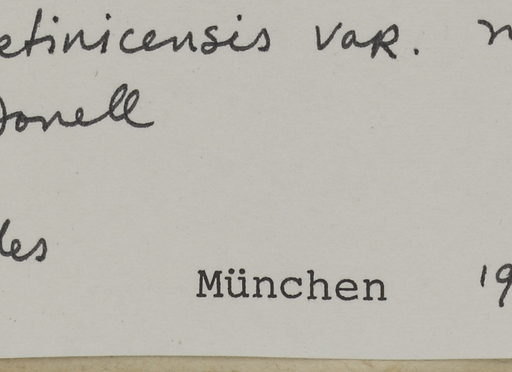 etinicensis var. 
Donell
les
München 19